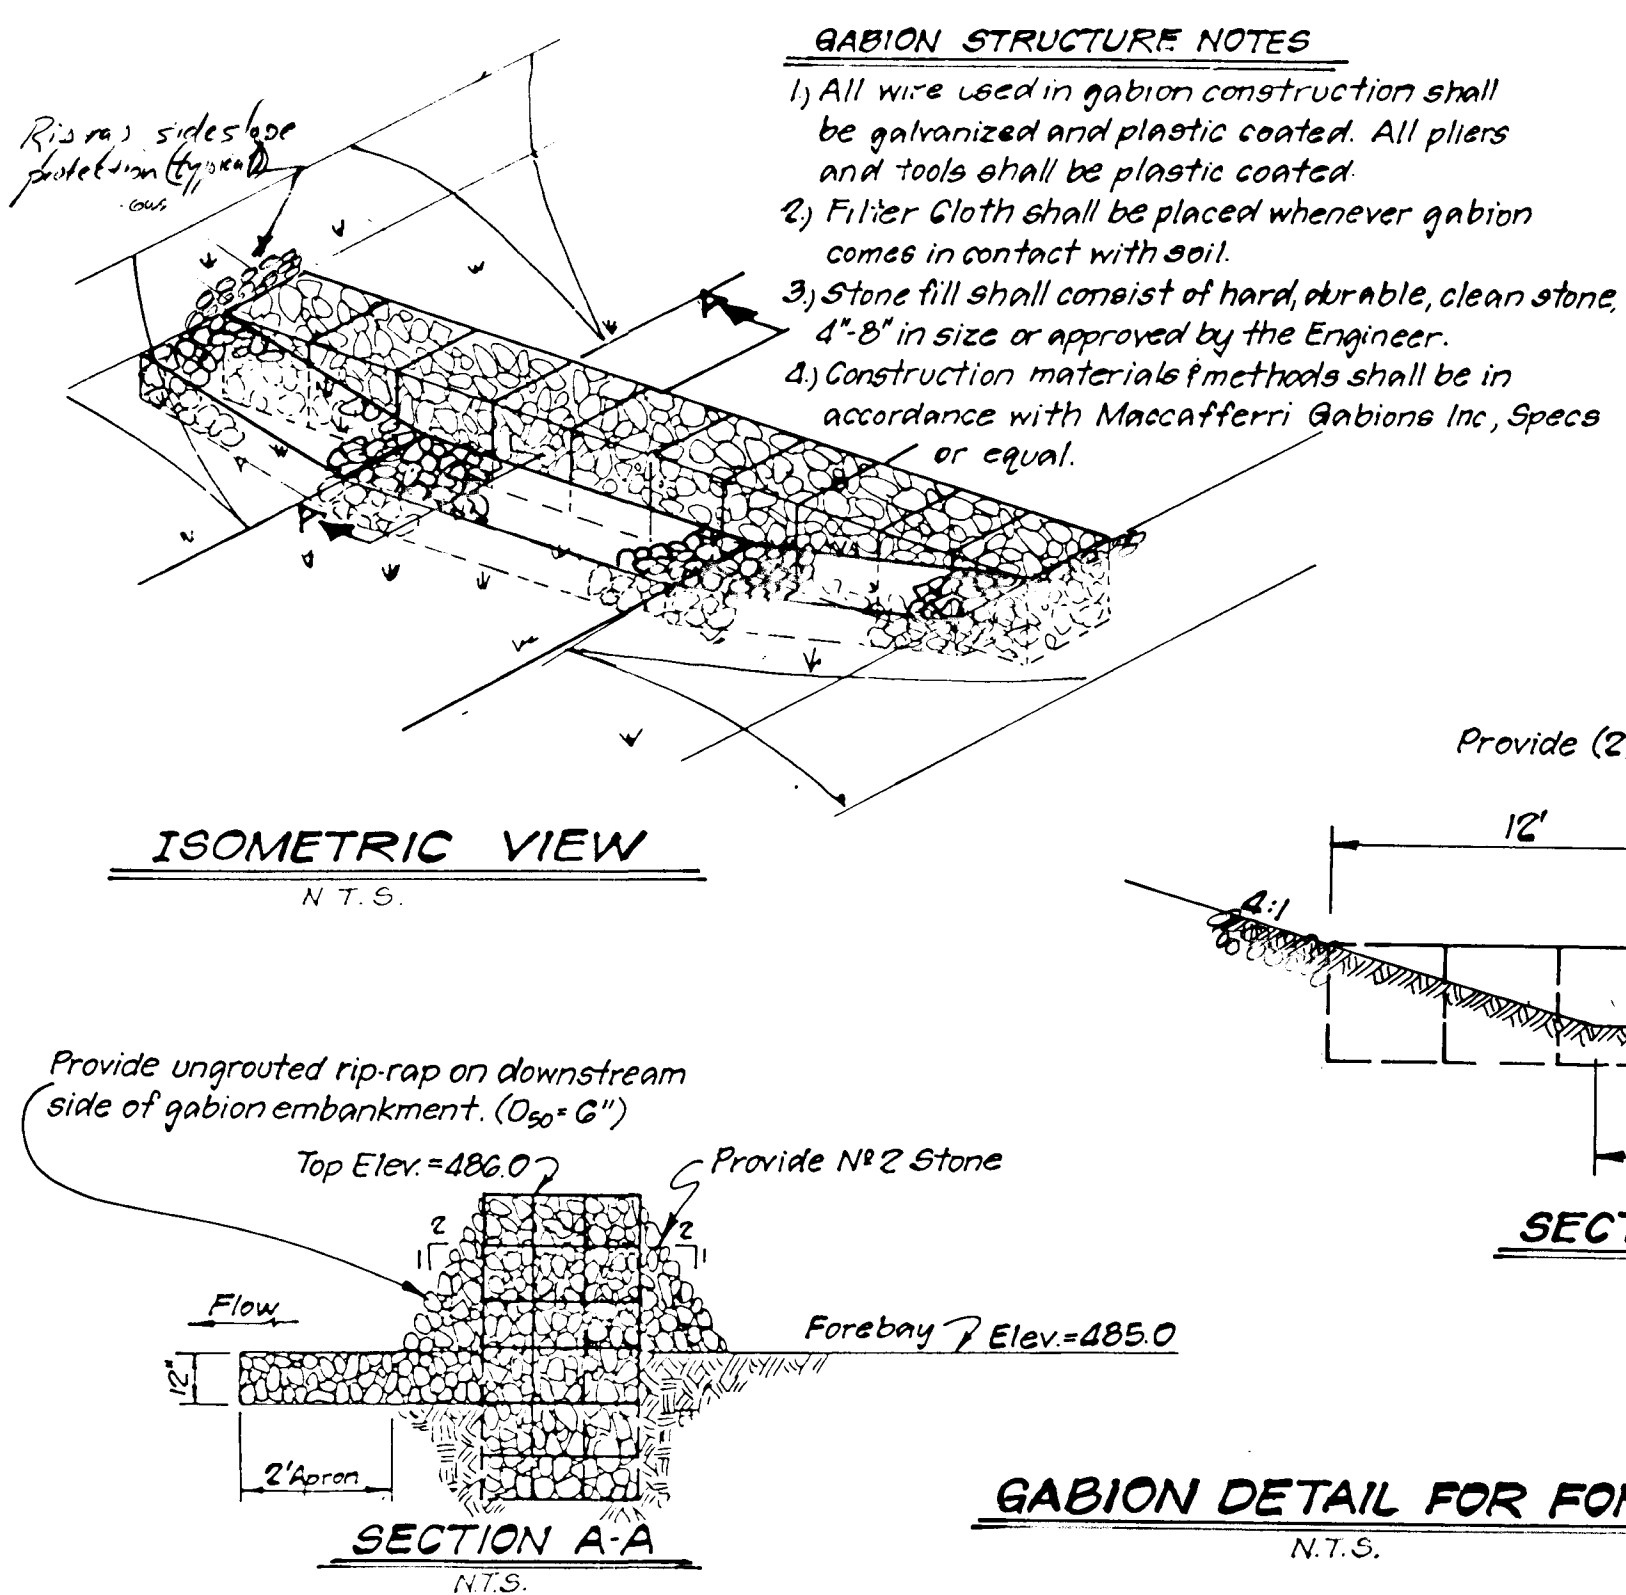 GABION STRUCTURE NOTES
1.) All wire used in gabion construction shall
be galvanized and plastic coated. All pliers
and tools shall be plastic coated.
2.) Filter Cloth shall be placed whenever gabion
comes in contact with soil.
3.) Stone fill shall consist of hard, durable, clean stone,
4"-8" in size or approved by the Engineer.
4.) Construction materials & methods shall be in
accordance with Maccafferri Gabions Inc, Specs
or equal.
Rip rap sideslope
protection (typical)
A
A
ISOMETRIC VIEW
N.T.S.
Provide (2
12'
4:1
SECT
Provide ungrouted rip-rap on downstream
side of gabion embankment. (D50 = 6")
Top Elev. = 486.0
Provide Nº 2 Stone
2
1
2
1
Flow
Forebay
Elev. = 485.0
12"
2' Apron
SECTION A-A
N.T.S.
GABION DETAIL FOR FOR
N.T.S.